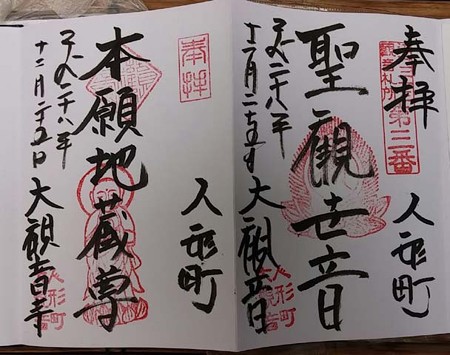 奉拝
第三番
人形町
聖観世音
平成二十八年
十二月二十五日
大観音
人形町
大観音
奉拝
人形町
本願地蔵尊
平成二十八年
十二月二十五日
大観音寺
人形町